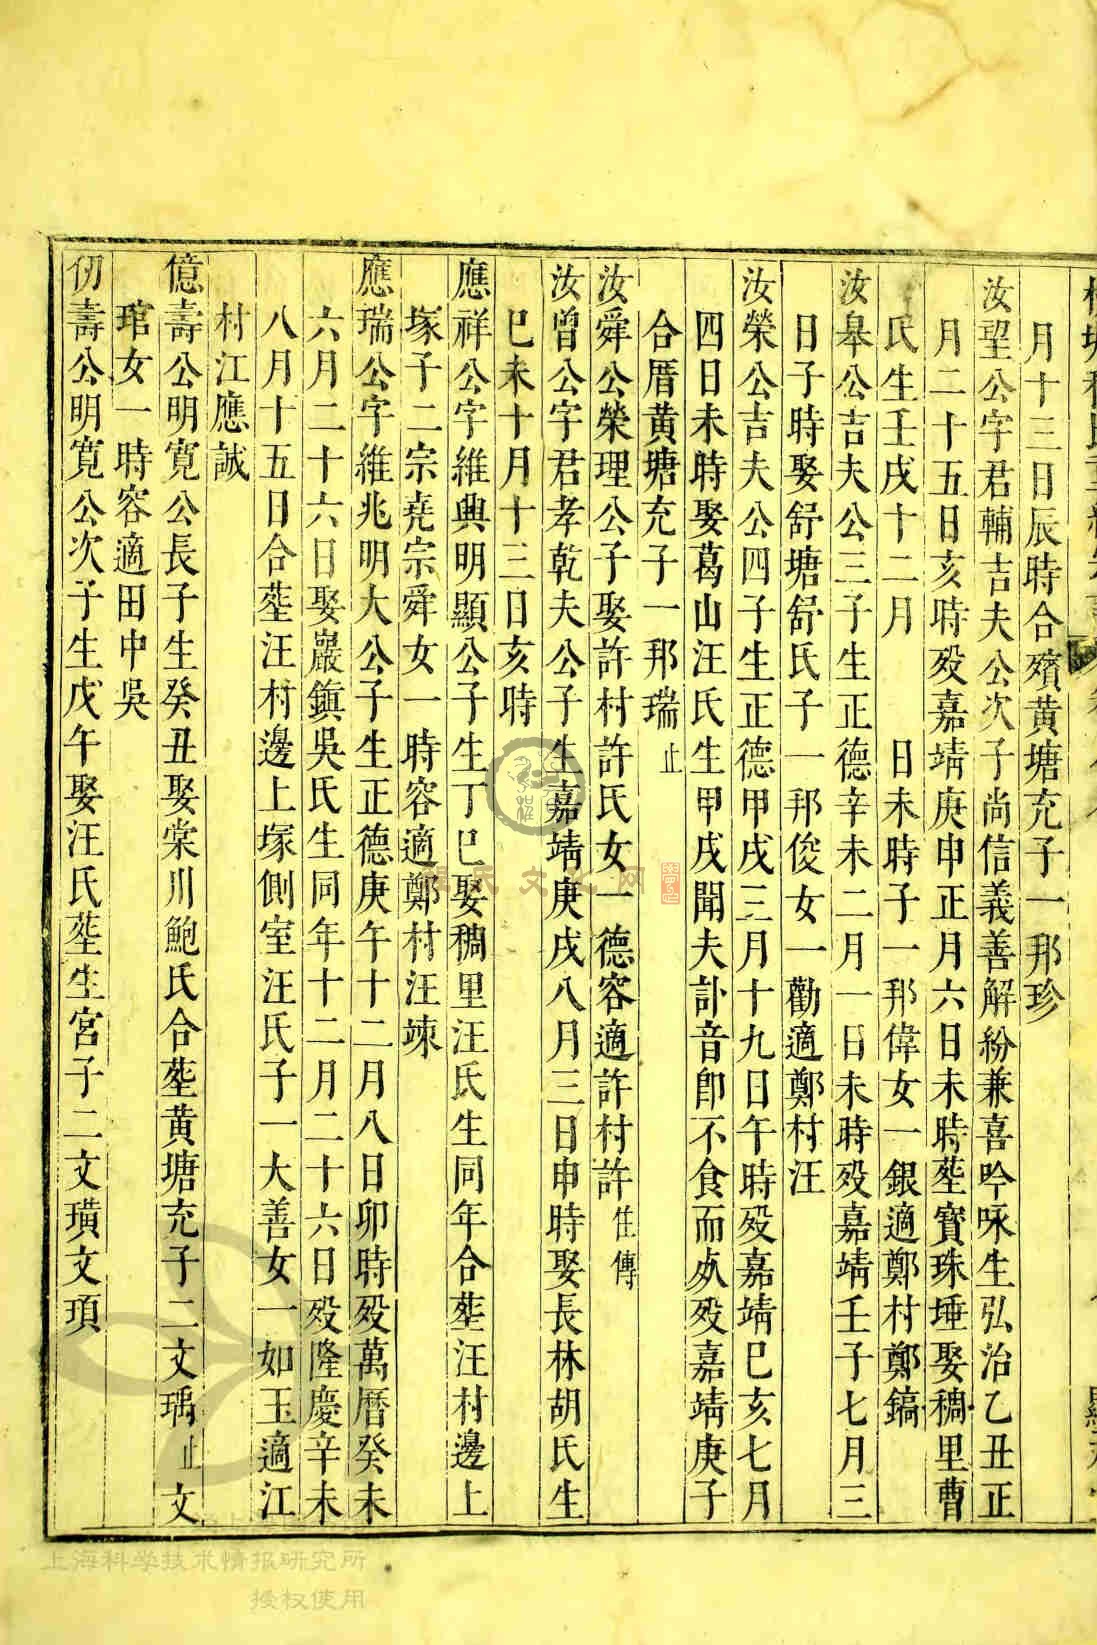 月十三日辰時合殯黄塘充子一邦珍
汝望公字君輔吉夫公次子尚信義善解紛兼喜吟咏生弘治乙丑正
月二十五日亥時殁嘉靖庚申正月六日未時塟寳珠埵娶稠里曹
氏生壬戌十二月 日未時子一邦偉女一銀適鄭村鄭鎬
汝皋公吉夫公三子生正德辛未二月一日未時殁嘉靖壬子七月三
日子時娶舒塘舒氏子一邦俊女一勸適鄭村汪
汝榮公吉夫公四子生正德甲戌三月十九日午時殁嘉靖巳亥七月
四日未時娶葛山汪氏生甲戌聞夫訃音卽不食而夨殁嘉靖庚子
合厝黄塘充子一邦瑞止
汝舜公榮理公子娶許村許氏女一德容適許村許 隹傳
汝曾公字君孝乾夫公子生嘉靖庚戌八月三日申時娶長林胡氏生
巳未十月十三日亥時
應祥公字維興明顯公子生丁巳娶稠里汪氏生同年合塟汪村邊上
塚子二宗堯宗舜女一時容適鄭村汪竦
應瑞公字維兆明大公子生正德庚午十二月八日卯時殁萬曆癸未
六月二十六日娶巖鎮吳氏生同年十二月二十六日殁隆慶辛未
八月十五日合塟汪村邊上塚側室汪氏子一大善女一如玉適江
村江應誠
億壽公明寛公長子生癸丑娶棠川鮑氏合塟黄塘充子二文瑀止文
琯女一時容適田中吳
仞壽公明寛公次子生戊午娶汪氏塟生宮子二文璜文頊
程氏文化网
上海科学技术情报研究所
授权使用